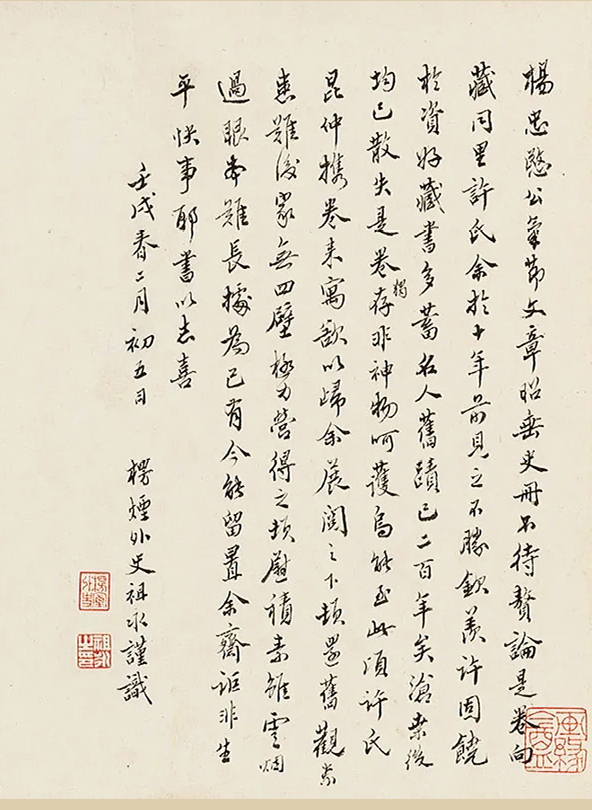 楊忠愍公氣節文章昭垂史冊不待贅論是卷向
藏同里許氏余於十年前見之不勝欽羨許固饒
於資好藏書多蓄名人舊蹟已二百年矣滄桑後
均已散失是卷獨存非神物呵護烏能至此頃許氏
昆仲攜卷来寓歙以歸余展閱之下頓還舊觀
患難後家無四壁極力營得之頓慰積素雖雲烟
過眼本難長據為己有今能留置余齋詎非生
平快事耶書以志喜
壬戌春二月初五日 楞煙外史祖永謹識